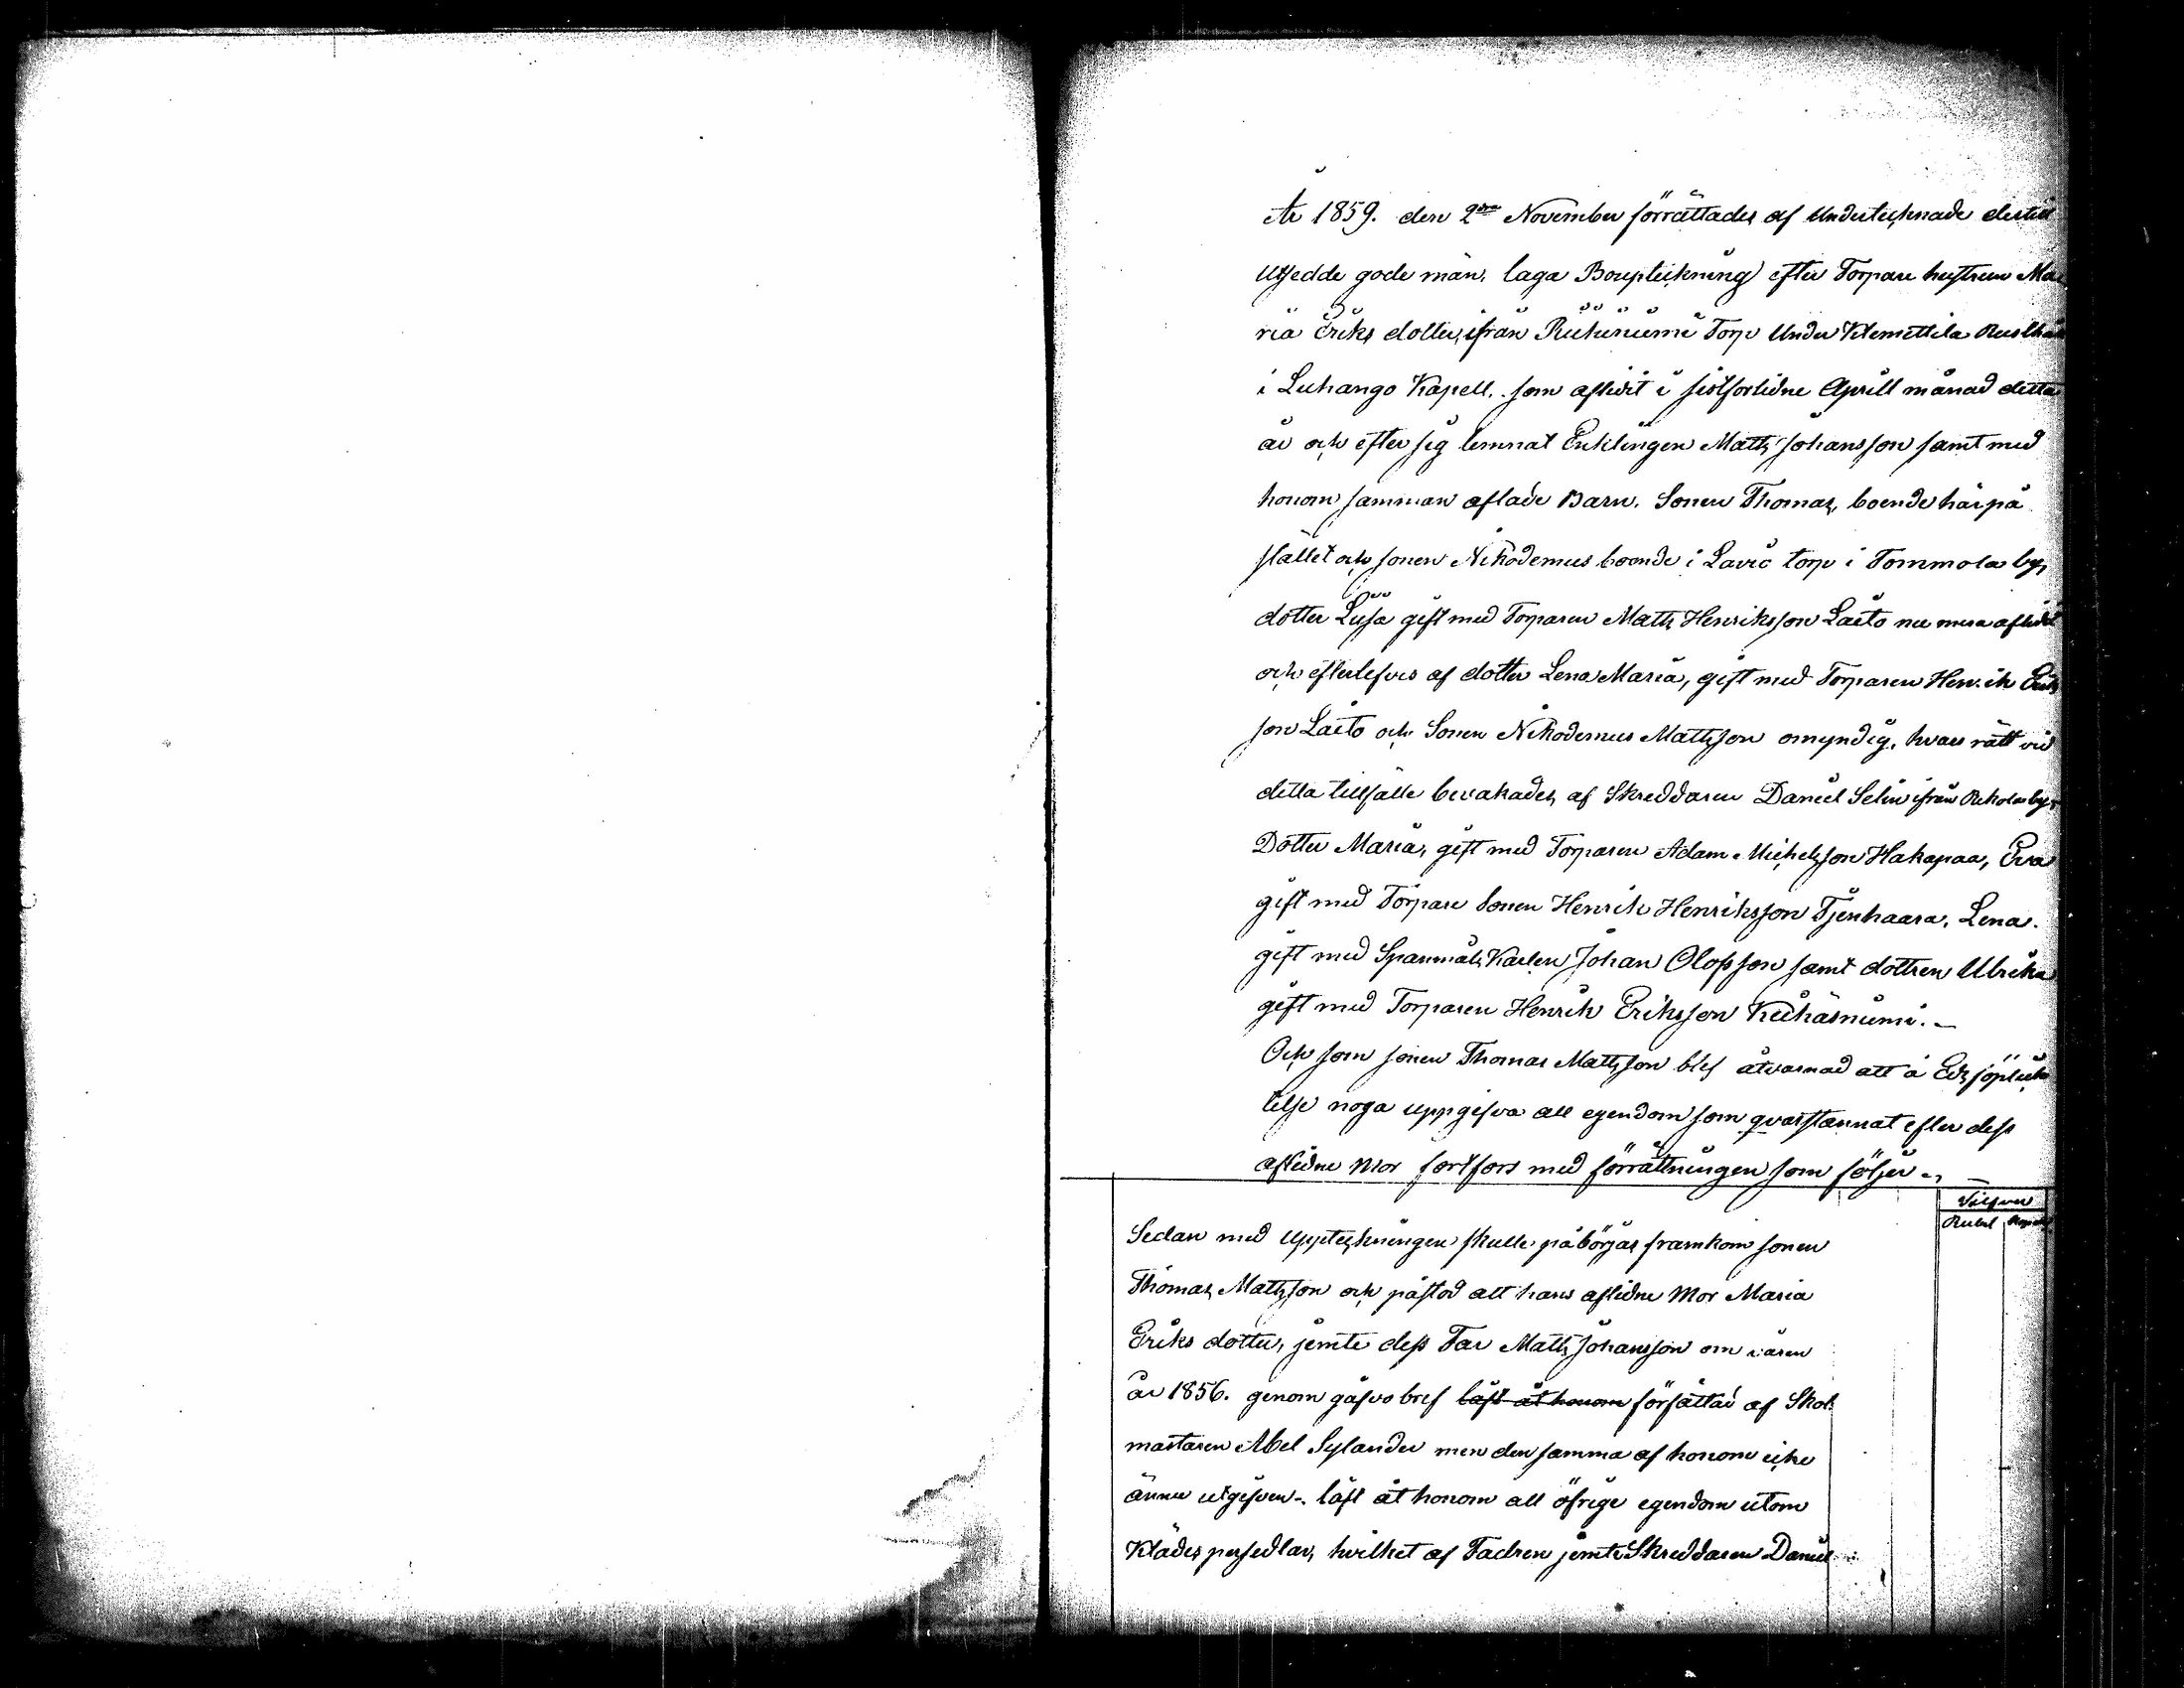 År 1859. den 2dra November förrättades af Undertecknade dertill
utsedde gode män, laga Bouptekning efter Torpare hustrun Ma
ria Eriks dotter, ifrån Torp Under Klemettila Rusthåll
i Luhango Kapell. som aflidit i sistforlidne Aprill månad detta
år och efter sig lemnat Enklingen Matts Johansson samt med
honom samman aflade Barn. Sonen Thomas, boende härpå
stället och sonen Nikodemus boende i torp i Tommola by,
dotter Lisa gift med Torparen Matts Henriksson Laito nu mera aflidit
och efterlefves af dotter Lena Maria, gift med Torparen Henrik Eriks
son Laito och Sonen Nikodemus Mattsson omyndig, hvars rätt vid
detta tillfälle bevakades af Skreddaren Daniel Selin ifrån by,
Dotter Maria, gift med Torparen Adam Michelsson Hakapaa, Eva
gift med Torpare Sonen Henrik Henriksson Tjenhaara, Lena.
gift med Spanmåls Karlen Johan Olofsson samt dottren Ulrika
gift med Torparen Henrik Eriksson
Och som sonen Thomas Mattsson blef åtvarnad att å Eds förplick
telse noga uppgifva all egendom som qvarstannat efter dess
aflidne Mor fortfors med förrättningen som följer.,
Rubel
Sedan med Uppteckningen skulle påbörjas framkom sonen
Thomas Mattsson och påstod att hans aflidne Mor Maria
Eriks dotter, jemte dess Far Matts Johansson om våren
år 1856. genom gåfvo bref låft åt honom författad af Skol
mastaren Abel Sylander men den samma af honom icke
ännu utgifven-. låft åt honom all öfrige egendom utom
Klädes persedlar, hvilket af Fadren jemte Skreddaren Daniel